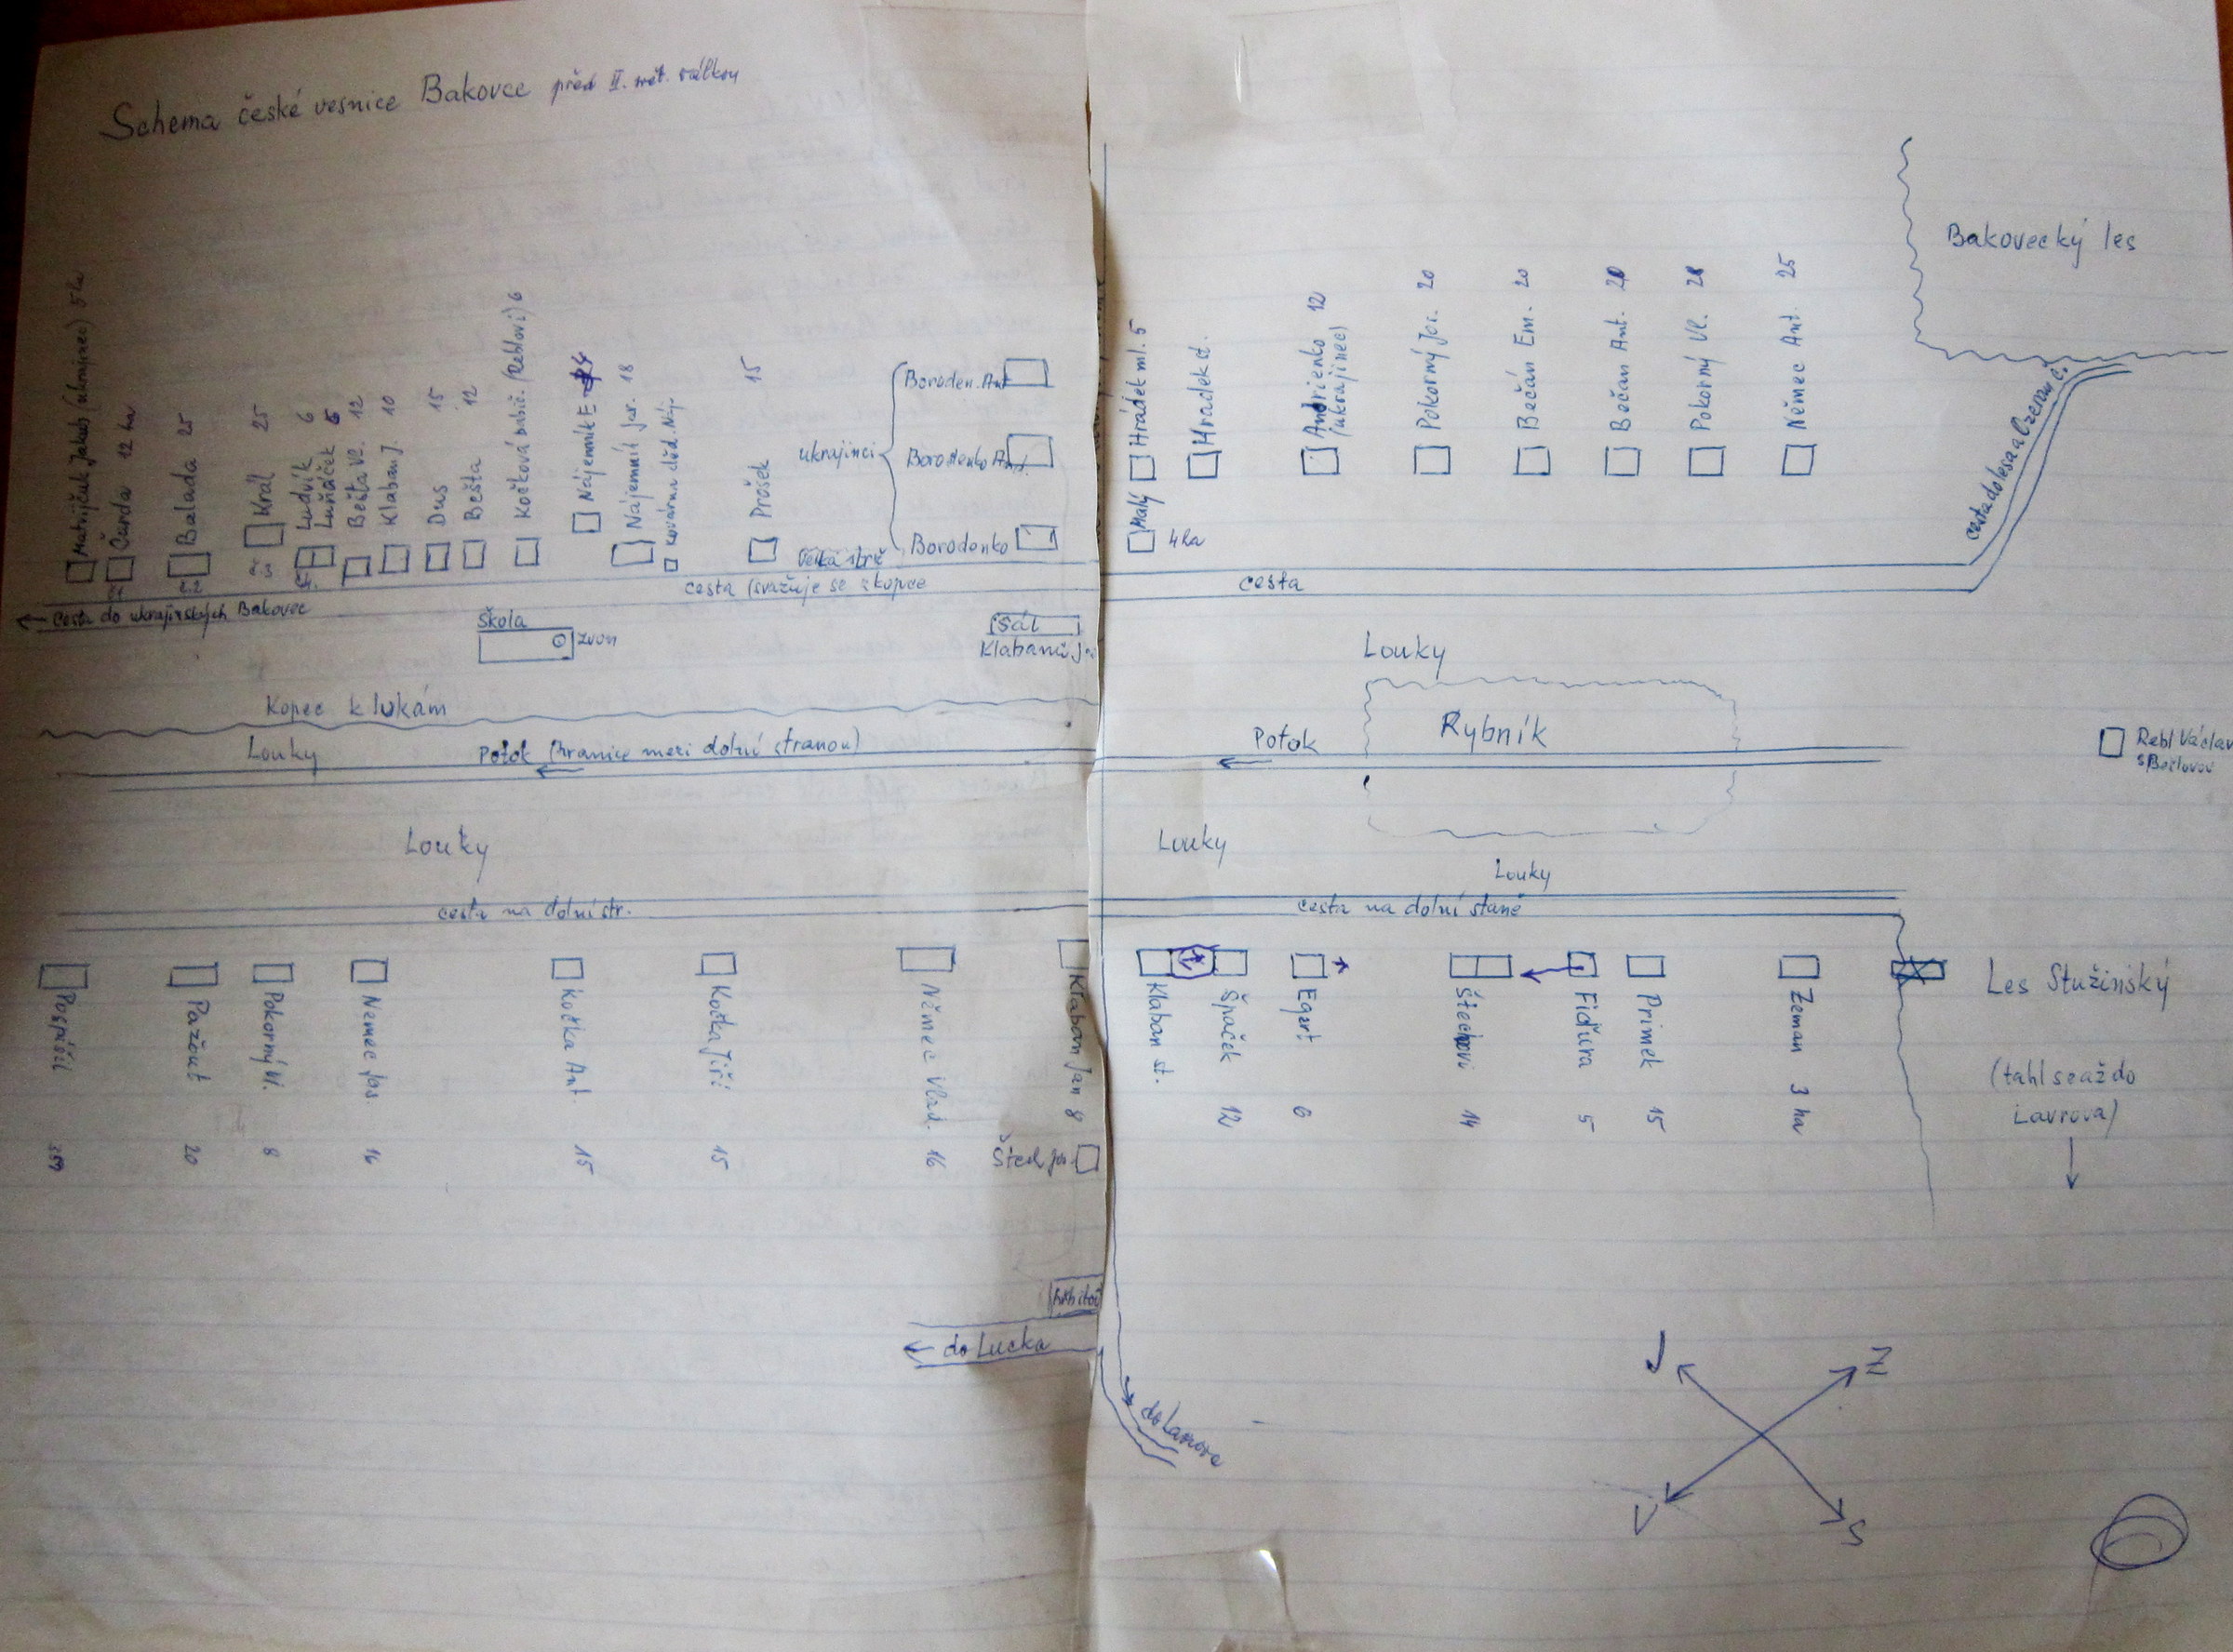 Schema české vesnice Bakovce před II. svět. válkou
Matvijčuk Jakub (ukrajinec) 5 ha
Čarda 12 ha
č1
Balada 25
č2
Král 25
č3
Ludvík 6
Luňáček 5
č4.
Bešta Vl. 12
Klaban J. 10
Dus 15
Bešta 12
Kočková babič. (Reblovi) 6
Nájemník E
Nájemník Jar. 18
kovárna děd. Náj.
Prošek 15
ukrajinci
Boroden. Ant
Borodenko Ant.
Borodenko
Velká strž
Hrádek ml. 5
Malý
4ha
Hradek st.
Andrienko 12
(ukrajinec)
Pokorný Jos. 20
Bečán Em. 20
Bečan Ant. 20
Pokorný Vl.
Němec Ant. 25
Bakovecký les
cesta do lesa a
cesta (svažuje se z kopce
cesta
cesta do ukrajinských Bakovec
Škola
zvon
Sál
Klabanů J
Louky
Kopec k lukám
Louky
Potok (hranice mezi dolní stranou)
Potok
Rybník
Rebl Václav
Louky
Louky
Louky
cesta na dolní str.
cesta na dolní staně
Pospíšil
Pažout 20
Pokorný Vl. 8
Nemec Jos. 16
Kočka Ant. 15
Kočka Jiří 15
Němec Vlad. 16
Klaban Jan 8
Štech Jos.
Klaban st.
Špaček 12
Egert 6
Štechovi 14
Fidúra 5
Primek 15
Zeman 3 ha
Les Stužinský
(táhl se až do
Lavrova)
do Lucka
do Lavrova
J
Z
V
S